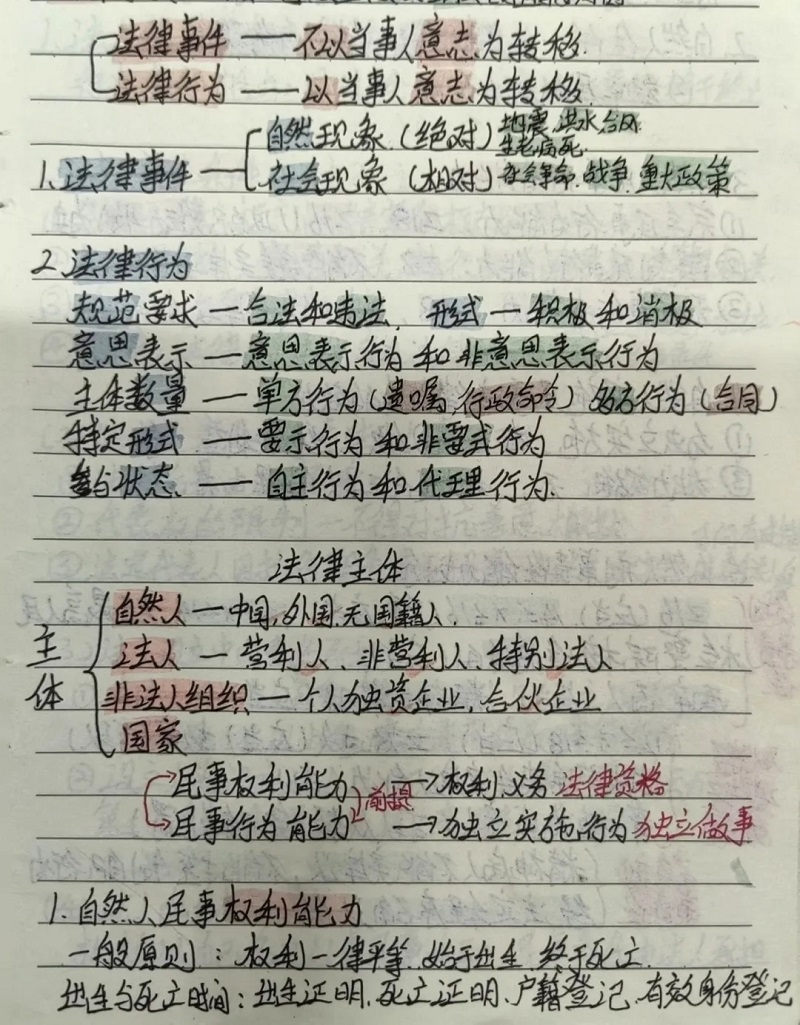 法律事件 —— 不以当事人意志为转移.
法律行为 —— 以当事人意志为转移.
自然现象（绝对）地震,洪水,台风.
生老病死.
1.法律事件 — 社会现象（相对）社会革命.战争.重大政策
2.法律行为
规范要求 — 合法和违法, 形式 — 积极和消极
意思表示 — 意思表示行为和非意思表示行为
主体数量 — 单方行为(遗嘱,行政命令) 多方行为(合同)
特定形式 —— 要示行为和非要式行为
参与状态. —— 自主行为和代理行为.
法律主体
自然人 — 中国,外国.无国籍人.
法人 — 营利人、非营利人、特别法人
主体
非法人组织 — 个人独资企业,合伙企业
国家
民事权利能力 → 权利,义务 法律资格
前提
民事行为能力 → 独立实施,行为 独立做事
1.自然人民事权利能力
一般原则：权利一律平等.始于出生 终于死亡.
出生与死亡时间：出生证明.死亡证明.户籍登记.有效身份登记